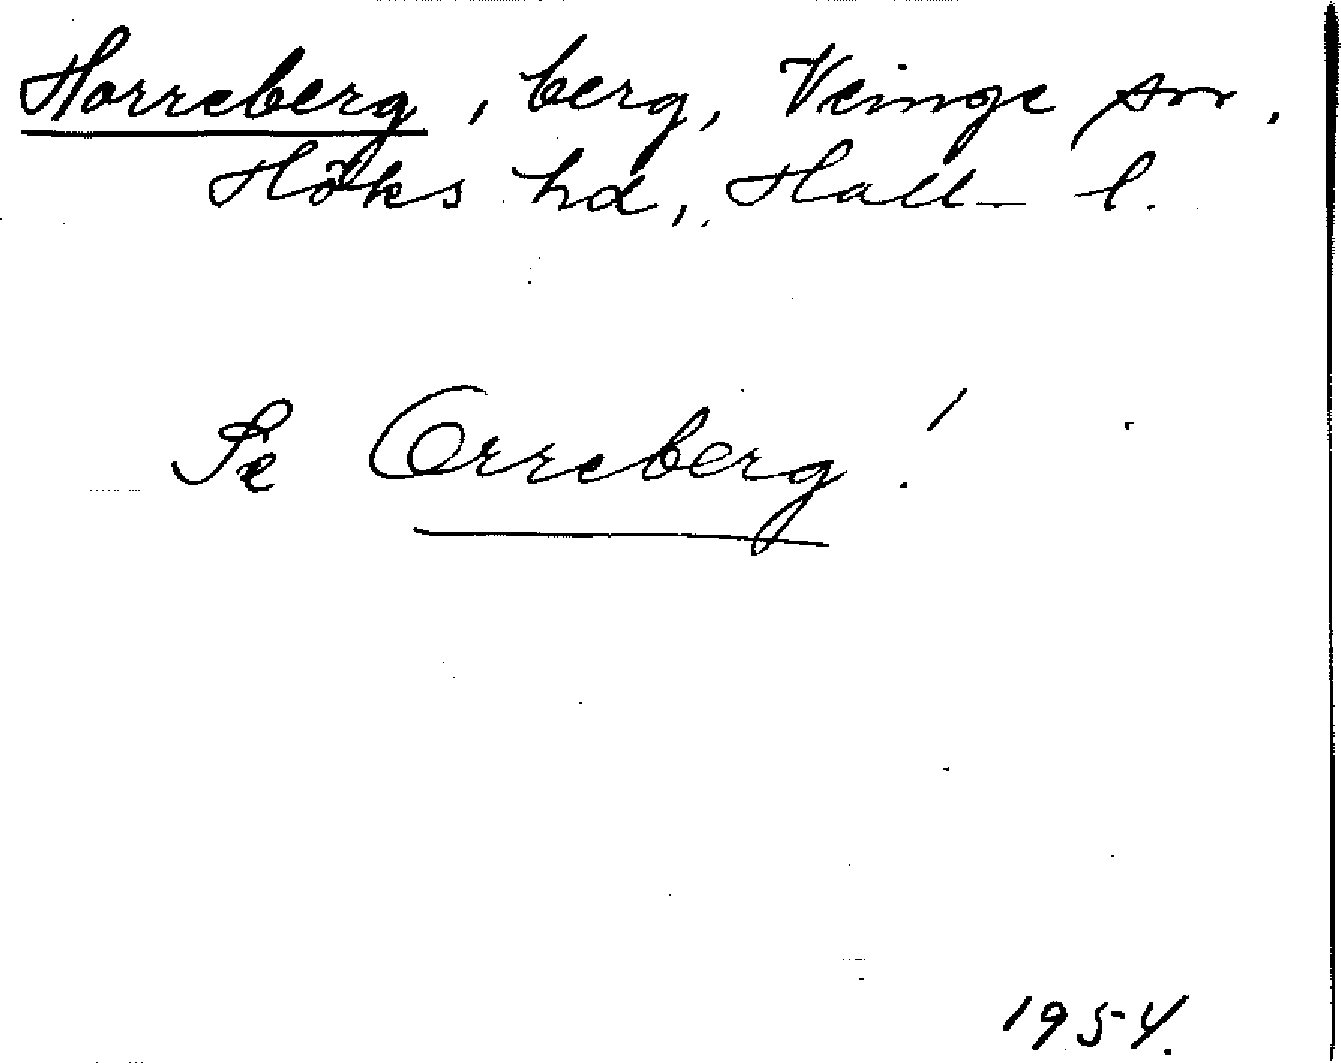 Horreberg, berg, Veinge sn,
Höks hd, Hall. l.
Se Orreberg!
1954.